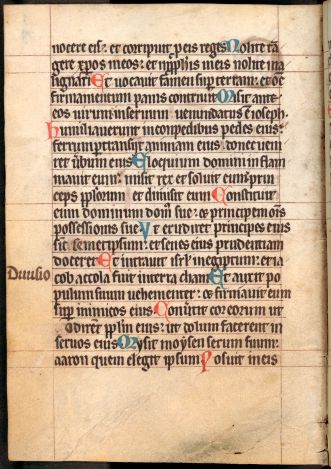 nocere eis: et corripuit p eis reges Nolite tā
gere xpos meos: et in pphis meis nolite ma
lignari Et vocavit famen sup terram: et oē
firmamentum panis contrivit Misit ante
eos virum in servum venundatus ē ioseph
humiliaverunt in conpedibus pedes eius:
ferrum ptransiit animam eius: donec veni
ret vbum eius Eloquium domini inflam
mavit eum: misit rex et solvit eum prin
ceps pplorum et dimisit eum Constituit
eum dominum dom sue: et principem oīs
possessionis sue Vt erudiret principes eius
sic semetipsum: et senes eius prudentiam
doceret Et intravit isrl in egiptum: et ia
Divisio cob accola fuit in terra cham Et auxit po
pulum suum vehementer: et firmavit eum
sup inimicos eius Convertit cor eorum ut
odirent pplm eius: ut dolum facerent in
servos eius Mysit moysen servum suum:
aaron quem elegit ipsum Posuit in eis